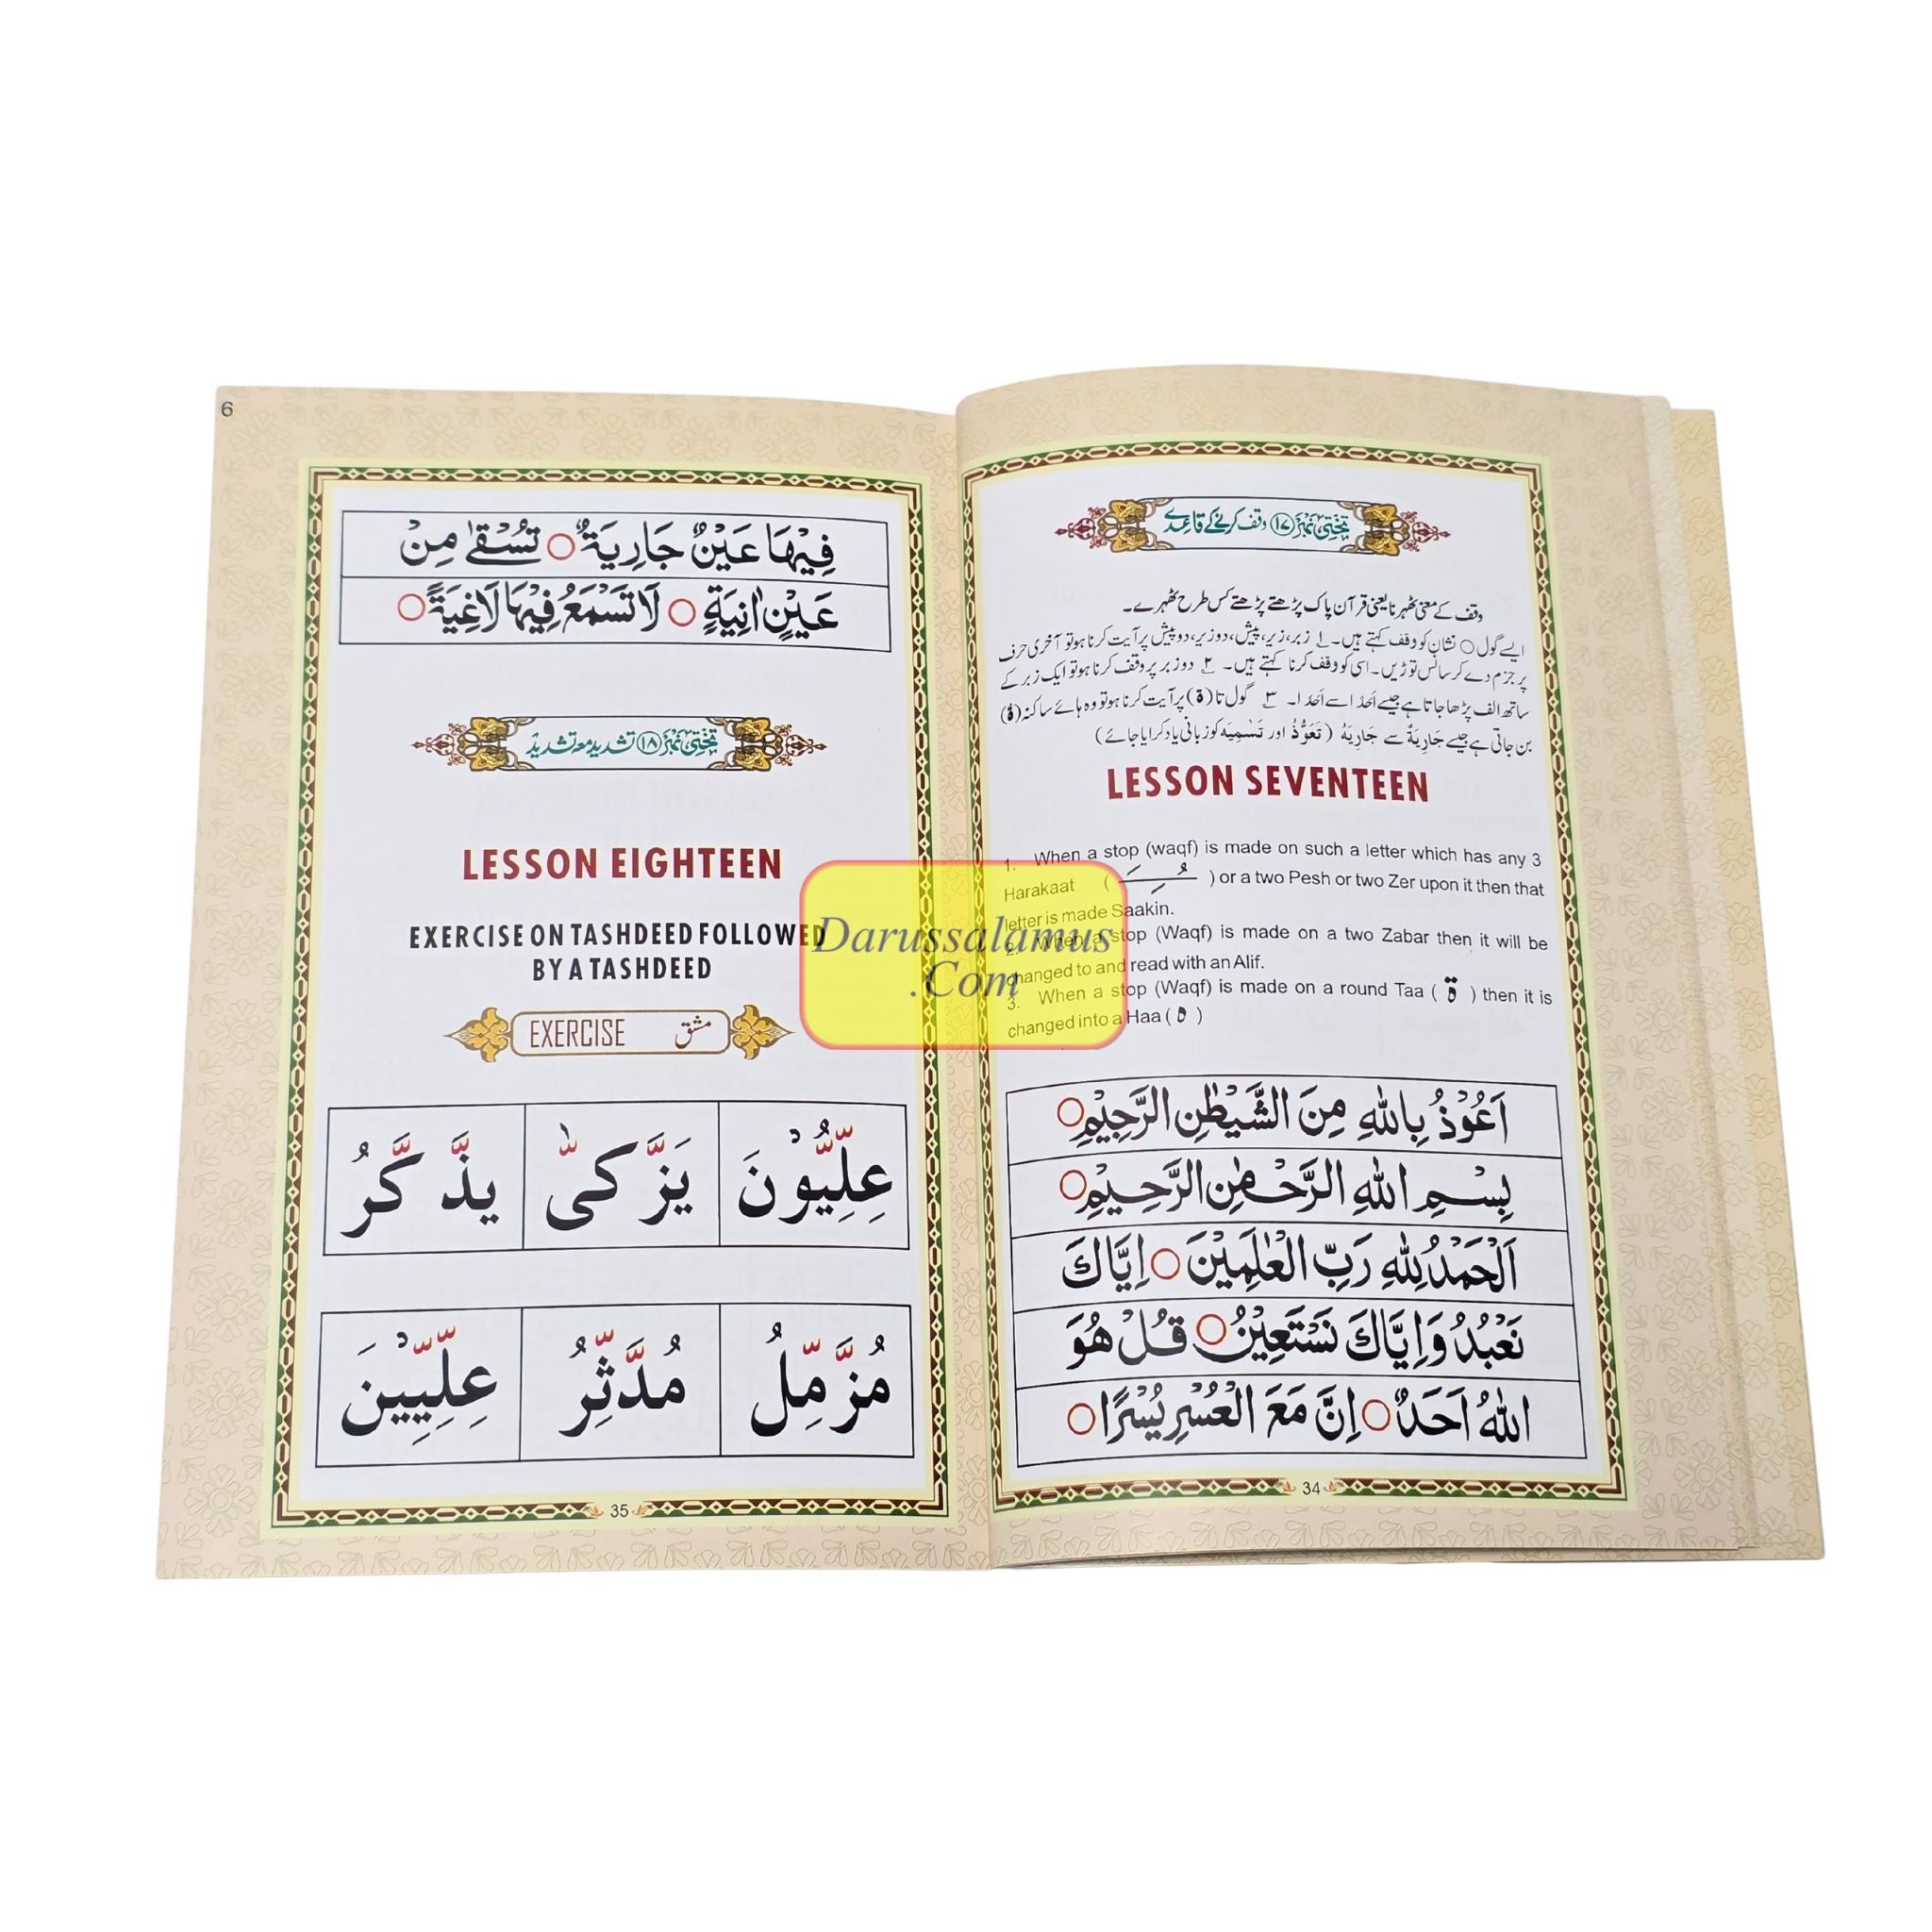 تختی نمبر ۱۷ وقف کرنے کے قاعدے
وقف کے معنی ٹھہرنا یعنی قرآن پاک پڑھتے پڑھتے کس طرح ٹھہرے۔
ایسے گول ○ نشان کو وقف کہتے ہیں۔ ۱ زبر، زیر، پیش، دو زیر، دو پیش پر آیت کرنا ہو تو آخری حرف
پر جزم دے کر سانس توڑیں۔ اسی کو وقف کرنا کہتے ہیں۔ ۲ دو زبر پر وقف کرنا ہو تو ایک زبر کے
ساتھ الف پڑھا جاتا ہے جیسے اَحَدًا سے اَحَدَا۔ ۳ گول تا (ة) پر آیت کرنا ہو تو وہ ہائے ساکنہ (هْ)
بن جاتی ہے جیسے جَارِيَةٌ سے جَارِيَهْ (تَعَوُّذْ اور تَسْمِيَه کو زبانی یاد کرایا جائے)
LESSON SEVENTEEN
1. When a stop (waqf) is made on such a letter which has any 3
Harakaat ( ـَـِـُ ) or a two Pesh or two Zer upon it then that
letter is made Saakin.
2. When a stop (Waqf) is made on a two Zabar then it will be
changed to and read with an Alif.
3. When a stop (Waqf) is made on a round Taa ( ة ) then it is
changed into a Haa ( ه )
اَعُوْذُ بِاللّٰهِ مِنَ الشَّيْطٰنِ الرَّجِيْمِ○
بِسْمِ اللّٰهِ الرَّحْمٰنِ الرَّحِيْمِ○
اَلْحَمْدُ لِلّٰهِ رَبِّ الْعٰلَمِيْنَ○ اِيَّاكَ
نَعْبُدُ وَاِيَّاكَ نَسْتَعِيْنُ○ قُلْ هُوَ
اللّٰهُ اَحَدٌ○ اِنَّ مَعَ الْعُسْرِ يُسْرًا○
34
6
فِيْهَا عَيْنٌ جَارِيَةٌ○ تُسْقٰى مِنْ
عَيْنٍ اٰنِيَةٍ○ لَا تَسْمَعُ فِيْهَا لَاغِيَةً○
تختی نمبر ۱۸ تشدید معہ تشدید
LESSON EIGHTEEN
EXERCISE ON TASHDEED FOLLOWED
BY A TASHDEED
EXERCISE مشق
عِلِّيُّوْنَ يَزَّكّٰى يذَّكَّرُ
مُزَّمِّلُ مُدَّثِّرُ عِلِّيِّيْنَ
35
Darussalamus
.Com